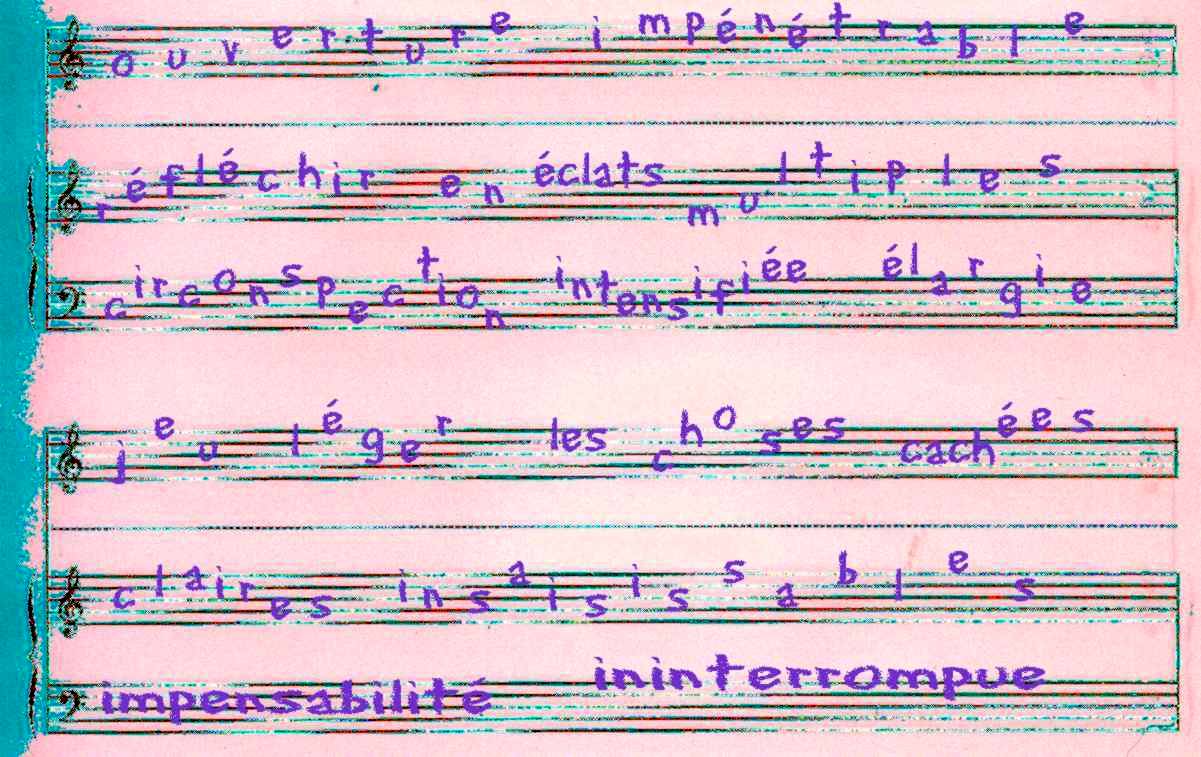 ouverture impénétrable
réfléchir en éclats multiples
circonspection intensifiée élargie
jeu léger les choses cachées
claires insaisissables
impensabilité ininterrompue